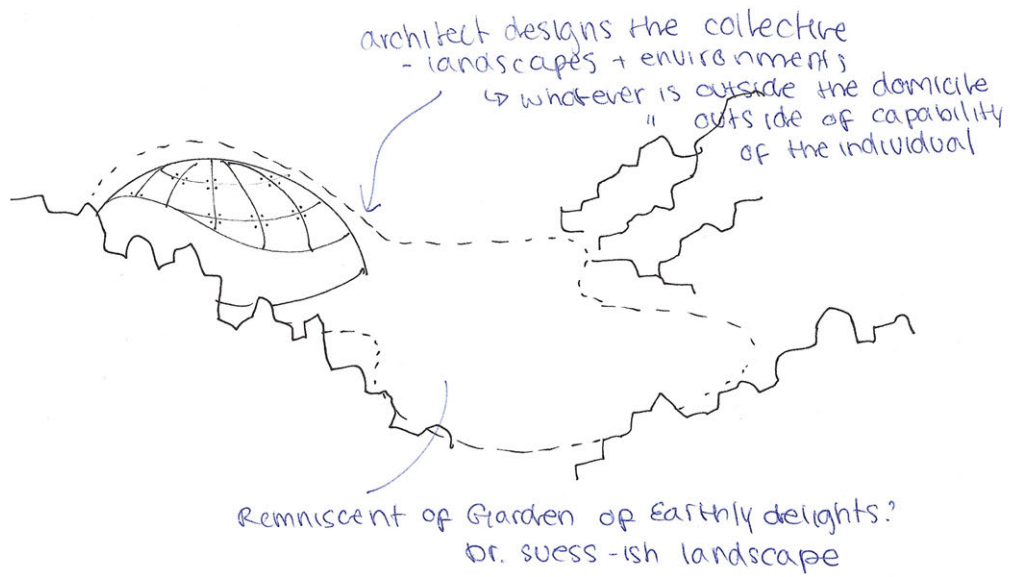 architect designs the collective
- landscapes + environments
↳ whatever is outside the domicile
" outside of capability
of the individual
Remniscent of Garden of Earthly delights?
Dr. Suess-ish landscape